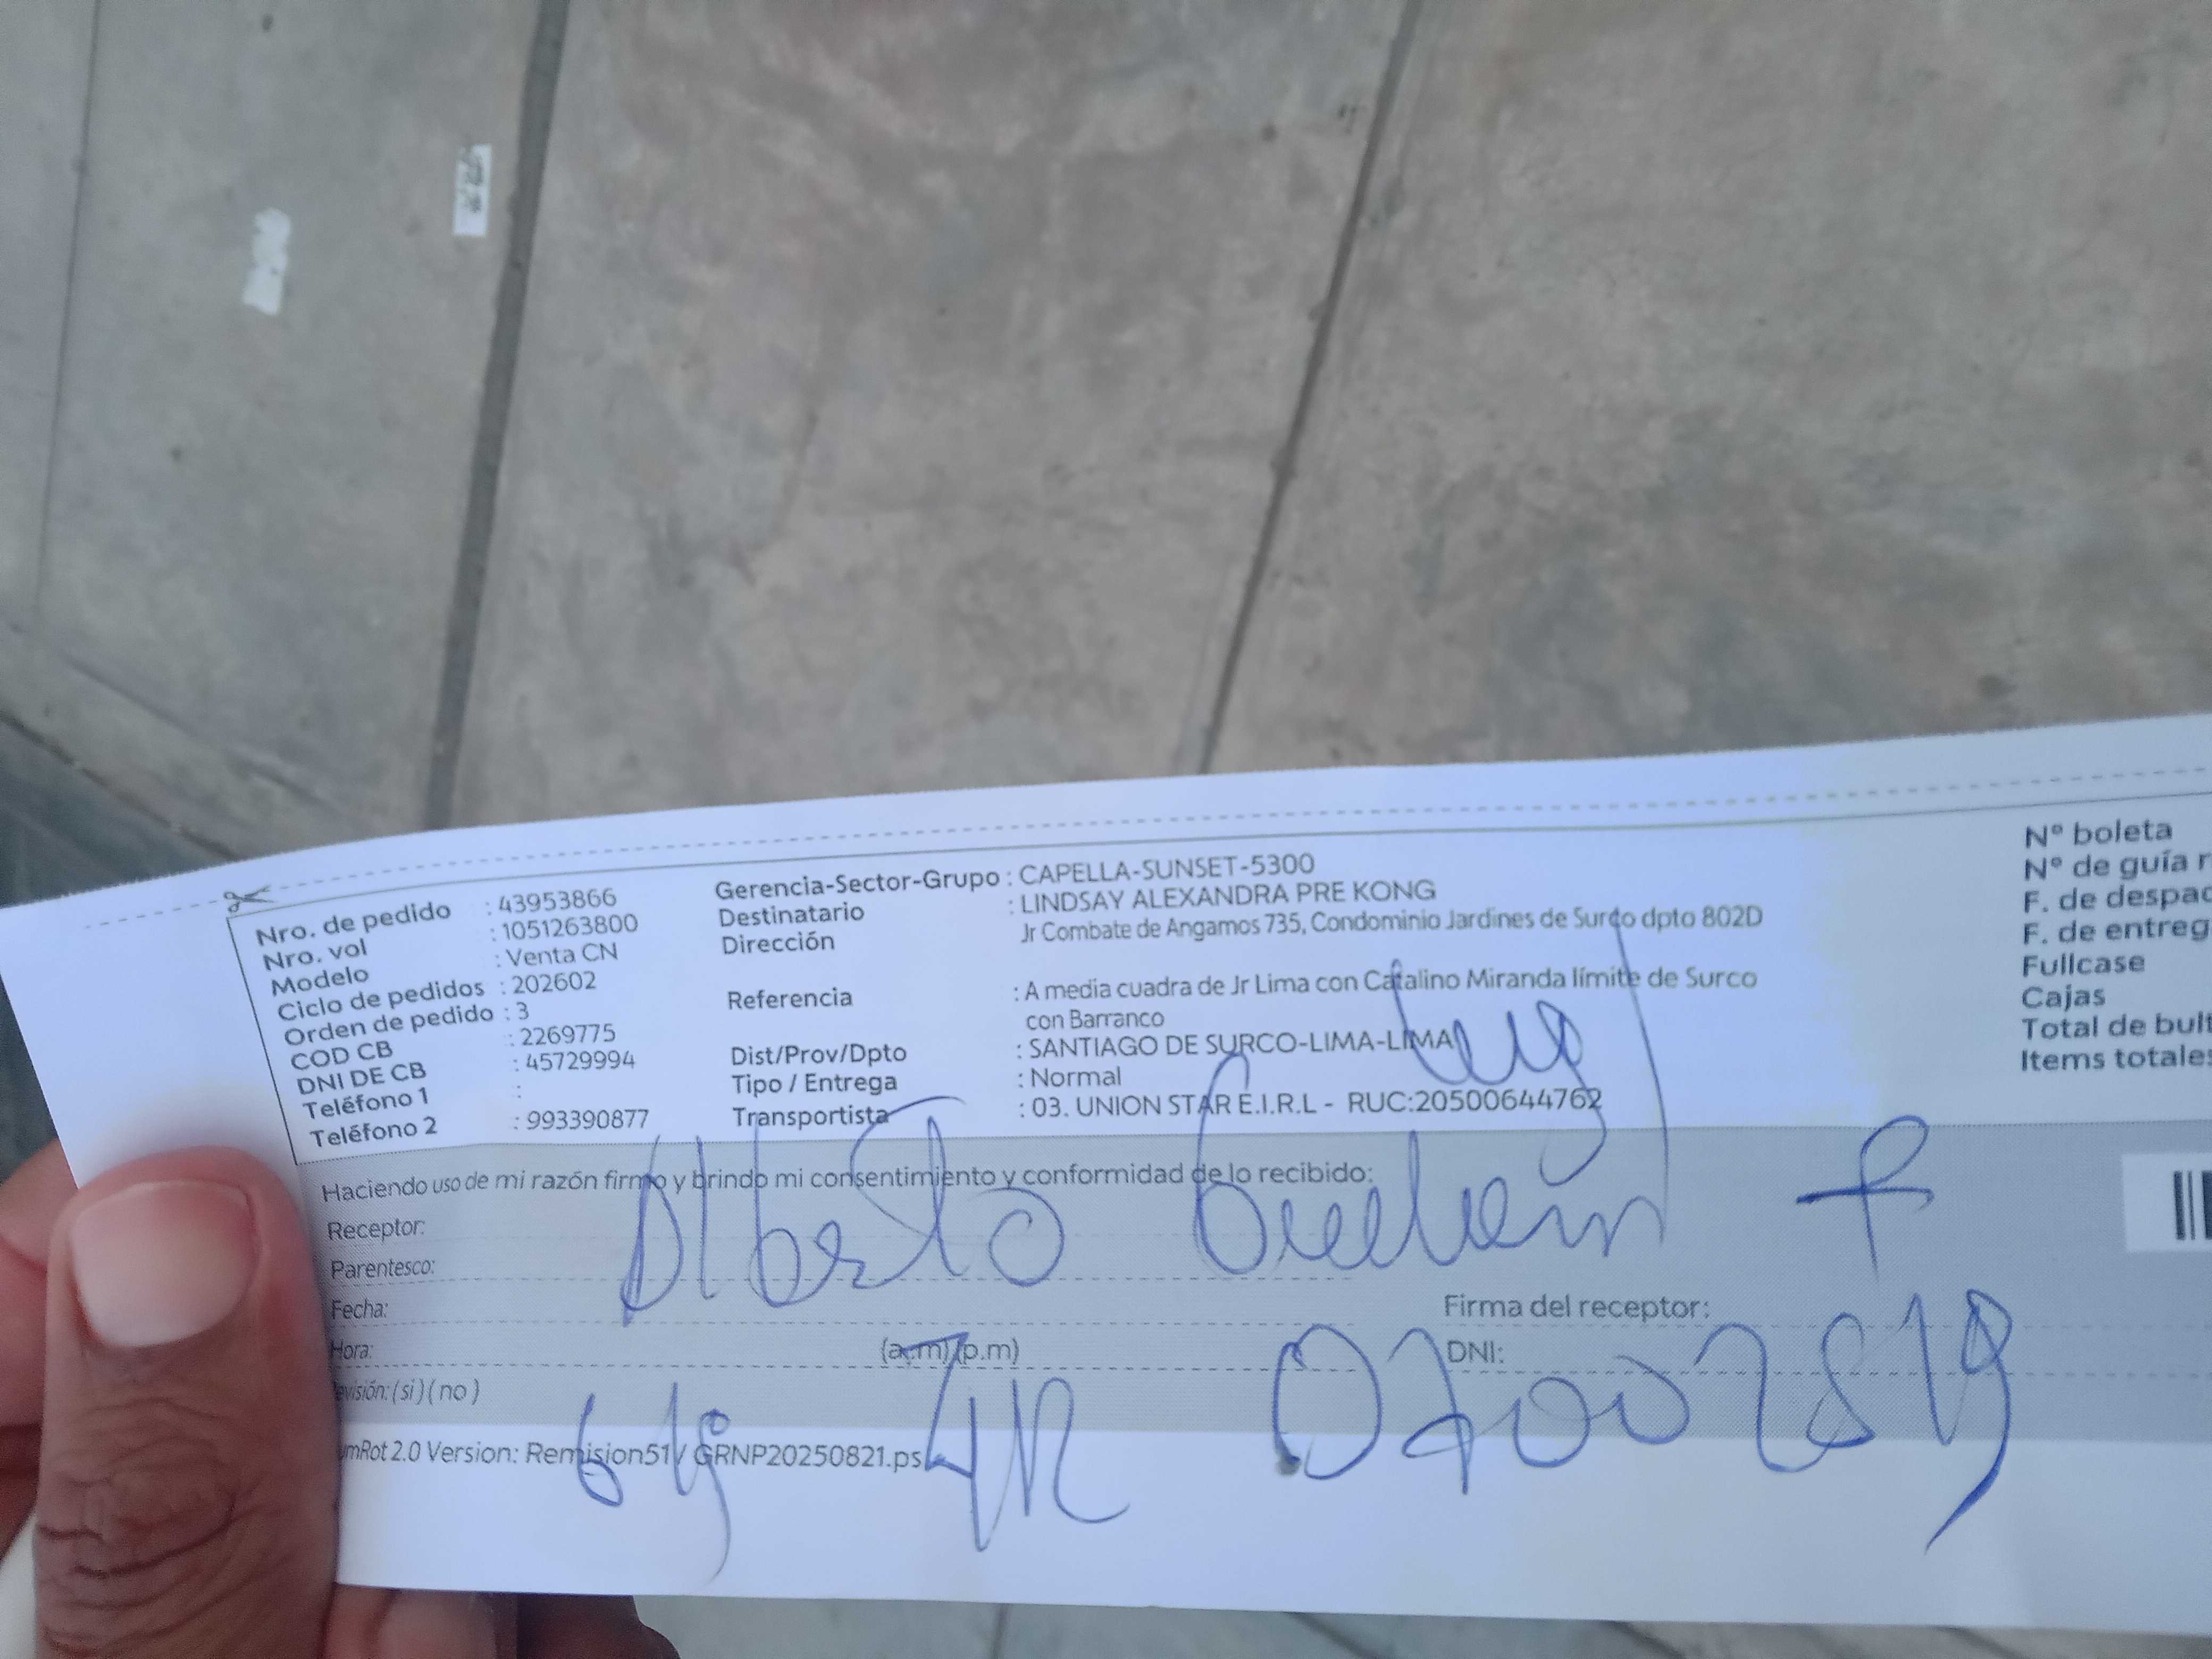 Nro. de pedido : 43953866
Nro. vol : 1051263800
Modelo : Venta CN
Ciclo de pedidos : 202602
Orden de pedido : 3
COD CB : 2269775
DNI DE CB : 45729994
Teléfono 1 :
Teléfono 2 : 993390877
Gerencia-Sector-Grupo : CAPELLA-SUNSET-5300
Destinatario : LINDSAY ALEXANDRA PRE KONG
Dirección Jr Combate de Angamos 735, Condominio Jardines de Surco dpto 802D
Referencia : A media cuadra de Jr Lima con Catalino Miranda límite de Surco
con Barranco
Dist/Prov/Dpto : SANTIAGO DE SURCO-LIMA-LIMA
Tipo / Entrega : Normal
Transportista : 03. UNION STAR E.I.R.L - RUC:20500644762
Nº boleta
Nº de guía r
F. de despac
F. de entreg
Fullcase
Cajas
Total de bult
Items totales
Haciendo uso de mi razón firmo y brindo mi consentimiento y conformidad de lo recibido:
Receptor: Alberto
Parentesco:
Fecha:
Hora: (a.m) (p.m)
Firma del receptor:
DNI:
evisión: ( si ) ( no )
umRot 2.0 Version: Remision51 / GRNP20250821.ps